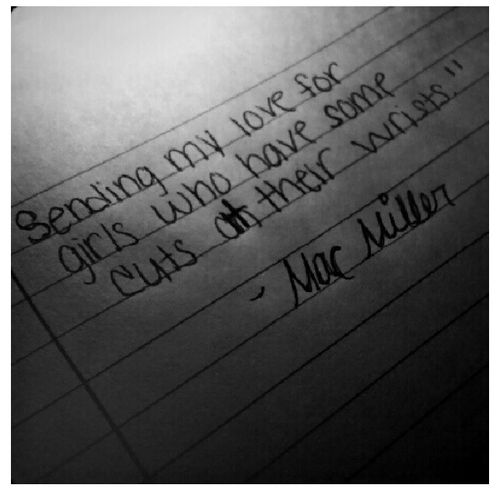 Sending my love for
girls who have some
cuts on their wrists."
- Mac Miller